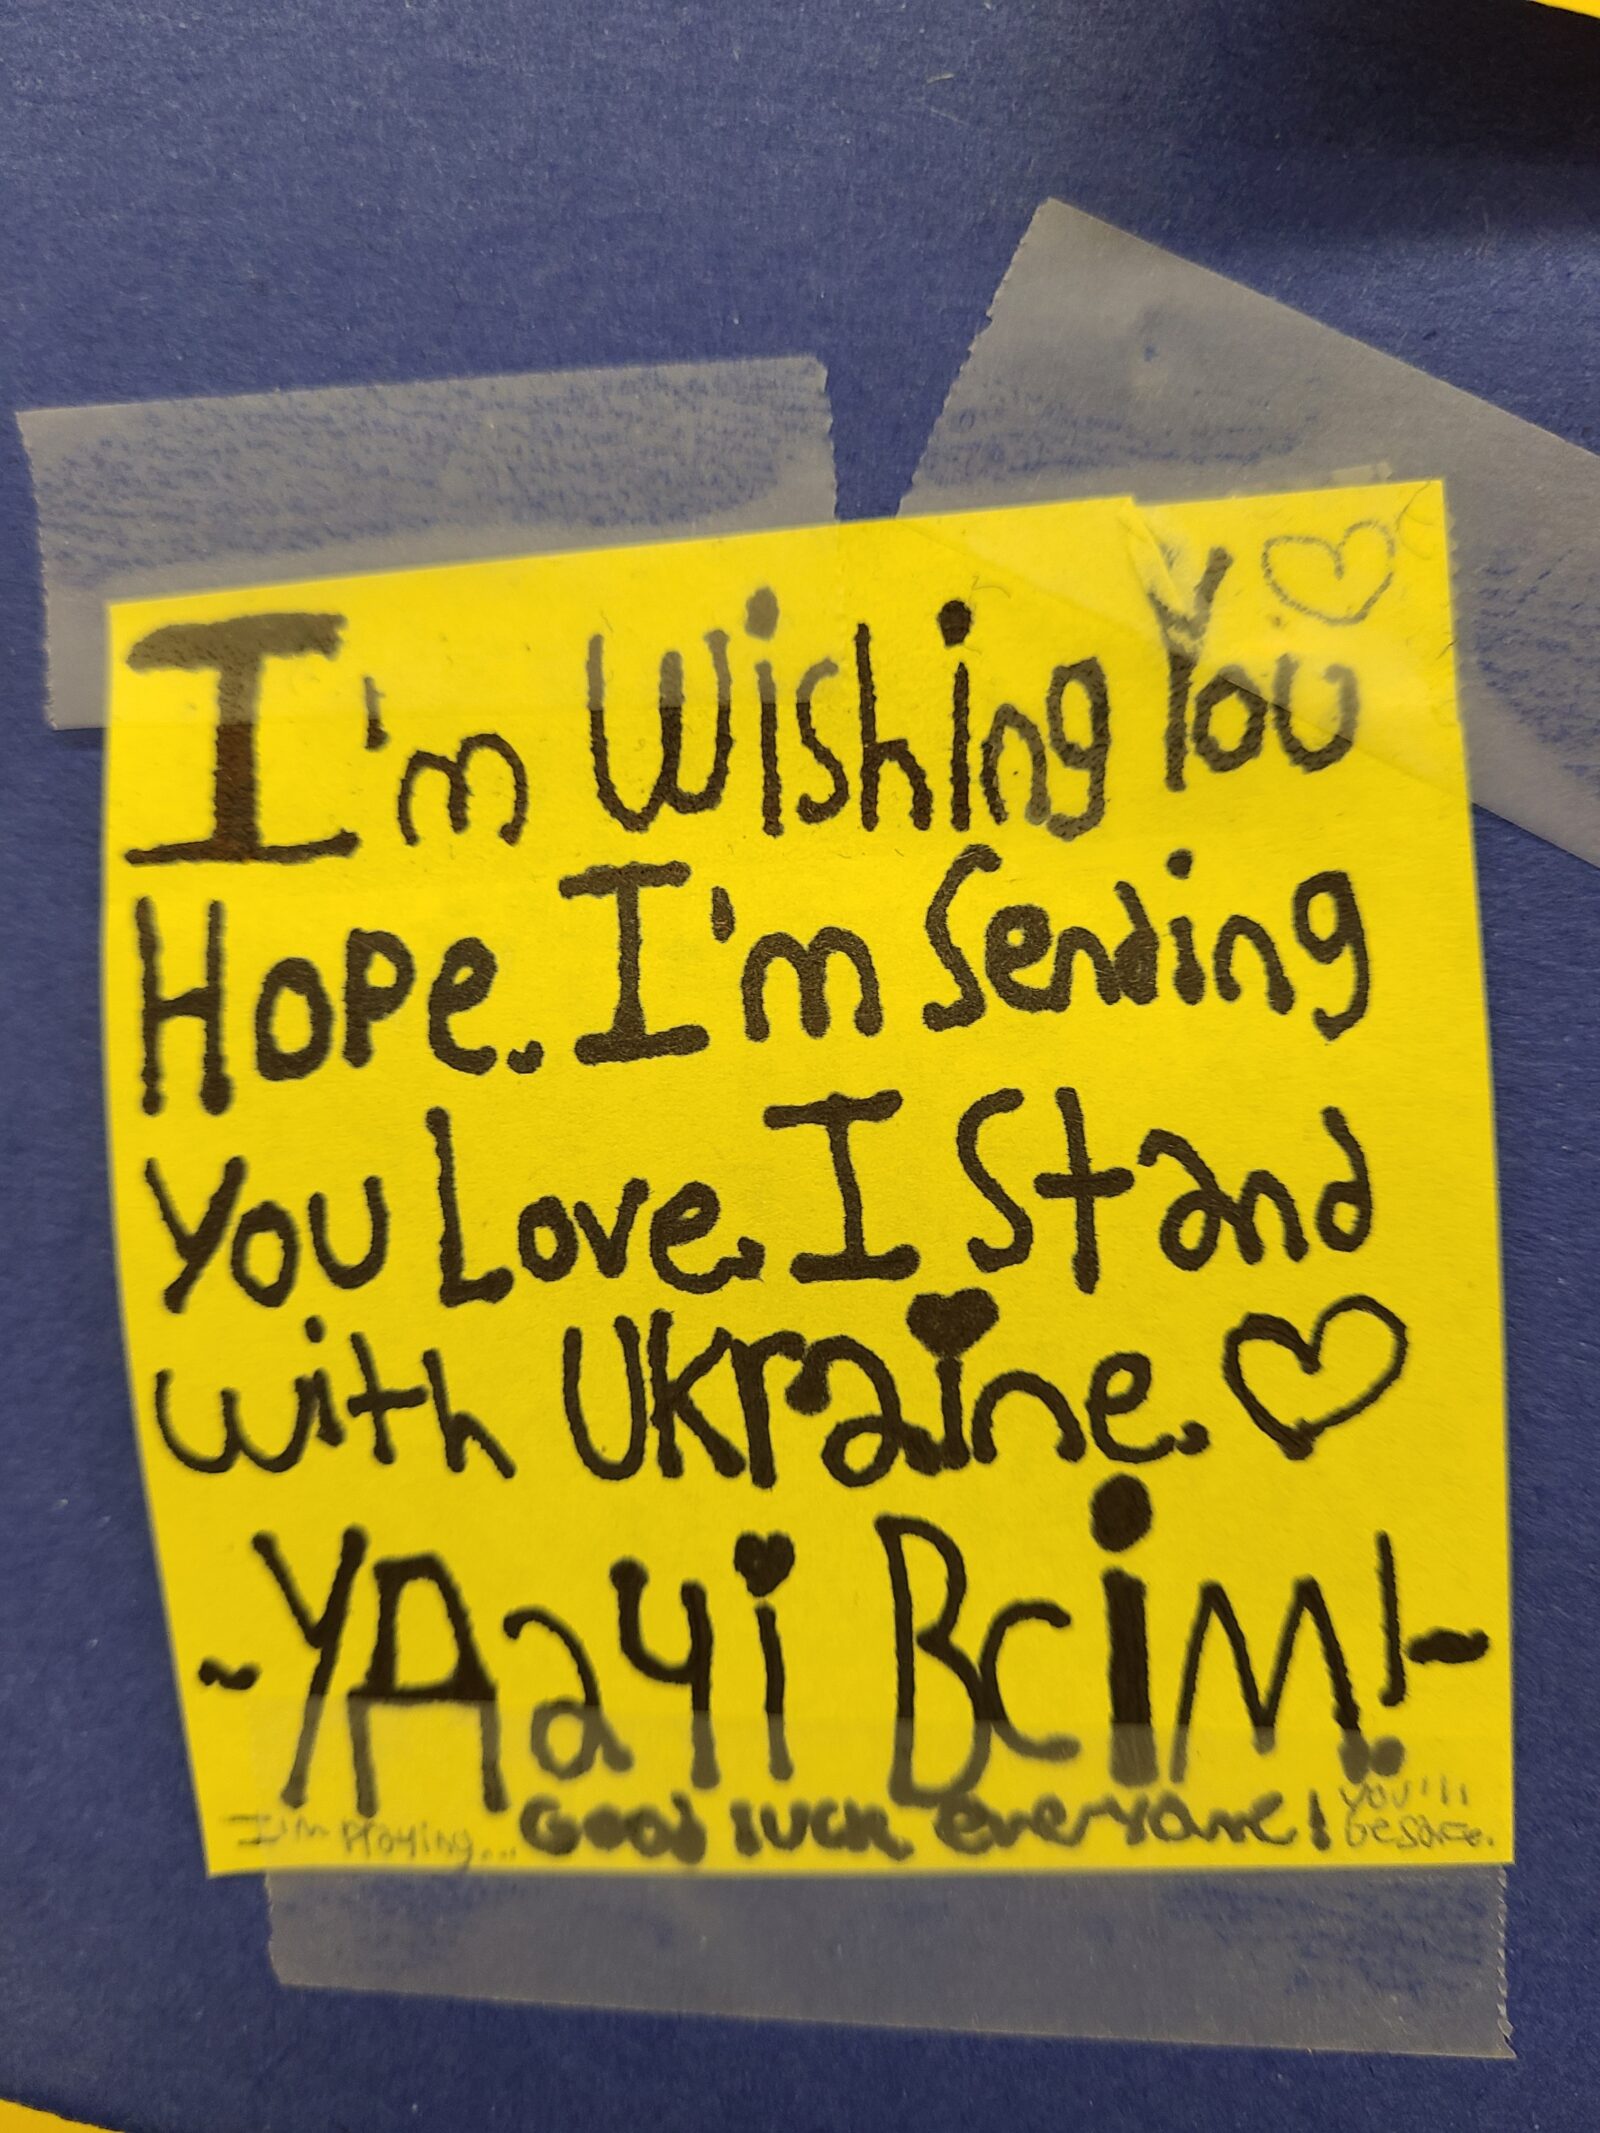 I'm Wishing You ♡
Hope. I'm Sending
You Love. I Stand
with Ukraine. ♡
~YAayi BCiM!~
I'm Praying... Good luck everyone! you'll
be safe.